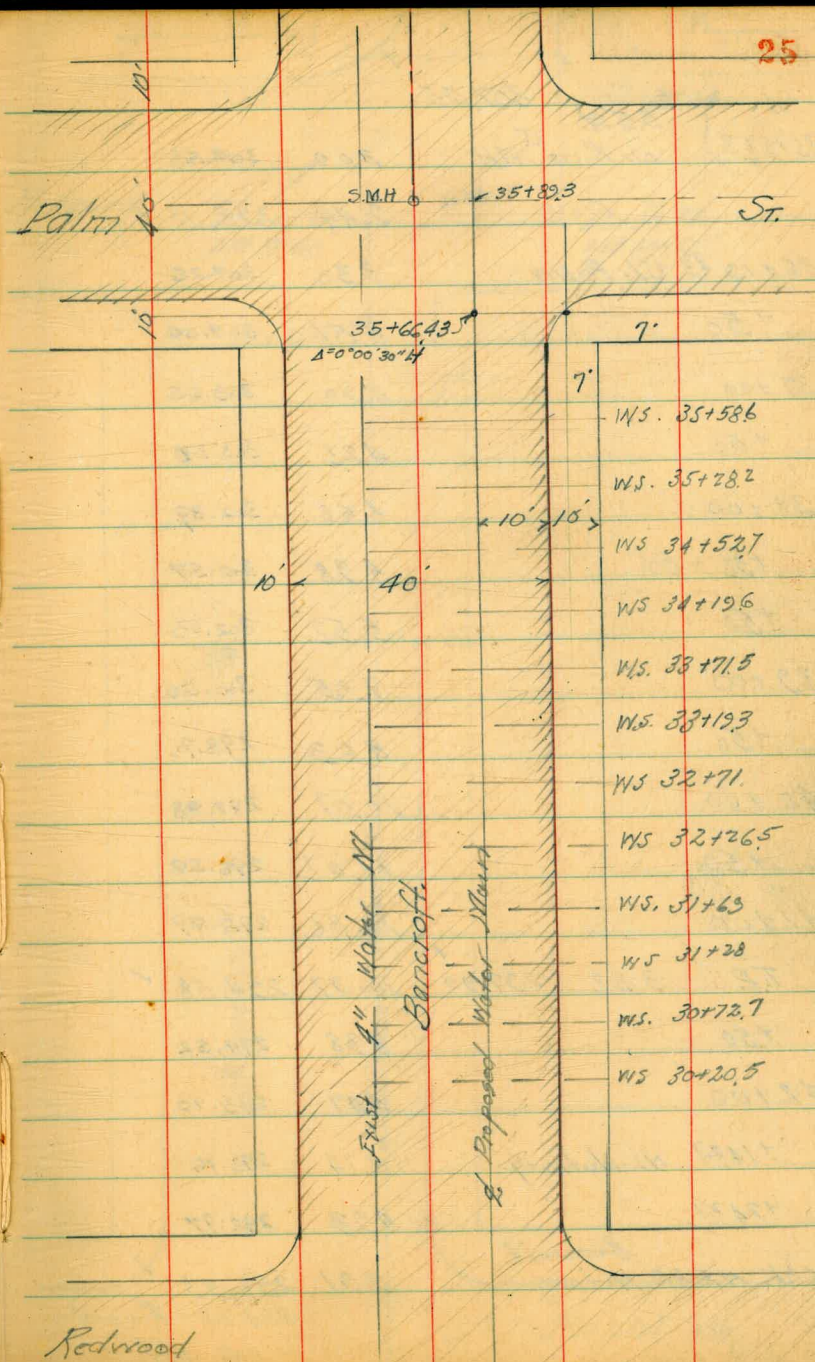 25
10'
S.M.H
35+89.3
Palm
40'
St.
10'
35+66.43
Δ=0°00'30" Lt
7'
7'
W.S. 35+58.6
W.S. 35+28.2
10'
10'
WS 34+52.7
10'
40'
WS 34+19.6
W.S. 33+71.5
W.S. 33+19.3
WS 32+71.
WS 32+26.5
W.S. 31+69
WS 31+28
W.S. 30+72.7
WS 30+20.5
Exist 4" Water M
Bancroft.
Proposed Water Main
Redwood